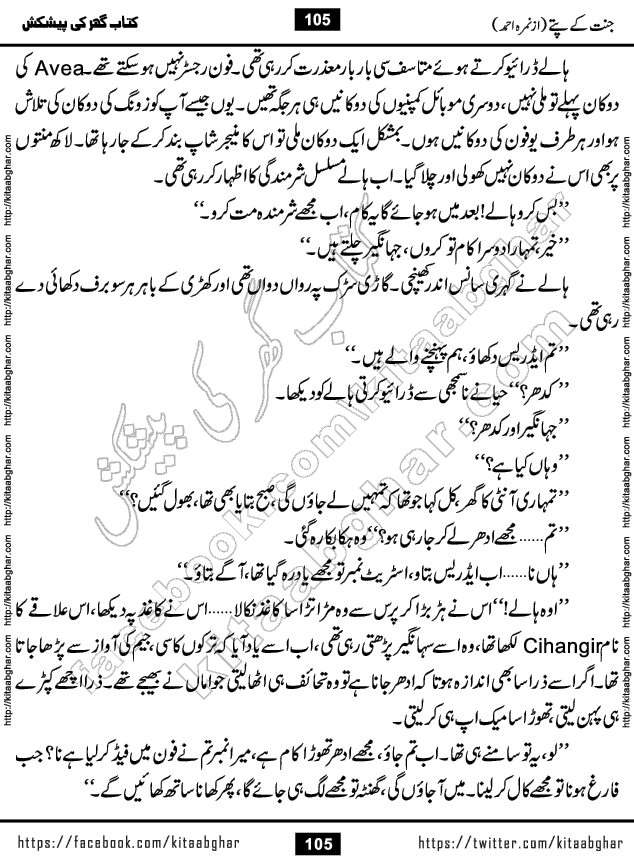 کتاب گھر کی پیشکش
105
جنت کے پتے (از نمرہ احمد)
ہالے ڈرائیو کرتے ہوئے متاسف سی بار بار معذرت کر رہی تھی۔ فون رجسٹر نہیں ہو سکتے تھے۔ Avea کی
دوکان پہلے تو ملی نہیں، دوسری موبائل کمپنیوں کی دوکانیں ہی ہر جگہ تھیں۔ یوں جیسے آپ کو زونگ کی دوکان کی تلاش
ہو اور ہر طرف یوفون کی دوکانیں ہوں۔ بمشکل ایک دوکان ملی تو اس کا منیجر شاپ بند کر کے جا رہا تھا۔ لاکھ منتوں
پر بھی اس نے دوکان نہیں کھولی اور چلا گیا۔ اب ہالے مسلسل شرمندگی کا اظہار کر رہی تھی۔
’’بس کرو ہالے! بعد میں ہو جائے گا یہ کام، اب مجھے شرمندہ مت کرو۔‘‘
’’خیر، تمہارا دوسرا کام تو کروں، جہانگیر چلتے ہیں۔‘‘
ہالے نے گہری سانس اندر کھینچی۔ گاڑی سڑک پہ رواں دواں تھی اور کھڑی کے باہر ہر سو برف دکھائی دے
رہی تھی۔
’’تم ایڈریس دکھاؤ، ہم پہنچنے والے ہیں۔‘‘
’’کدھر؟‘‘ حیا نے ناسمجھی سے ڈرائیو کرتی ہالے کو دیکھا۔
’’جہانگیر اور کدھر؟‘‘
’’وہاں کیا ہے؟‘‘
’’تمہاری آنٹی کا گھر، کل کہا جو تھا کہ تمہیں لے جاؤں گی، صبح بتایا بھی تھا، بھول گئیں؟‘‘
’’تم...... مجھے ادھر لے کر جا رہی ہو؟‘‘ وہ ہکا بکا رہ گئی۔
’’ہاں نا...... اب ایڈریس بتاؤ، اسٹریٹ نمبر تو مجھے یاد رہ گیا تھا، آگے بتاؤ۔‘‘
’’اوہ ہالے!‘‘ اس نے ہڑبڑا کر پرس سے وہ مڑا تڑا سا کاغذ نکالا...... اس نے کاغذ پہ دیکھا، اس علاقے کا
نام Cihangir لکھا تھا، وہ اسے سہانگیر پڑھتی رہی تھی، اب اسے یاد آیا کہ ترکوں کا سی، جیم کی آواز سے پڑھا جاتا
تھا۔ اگر اسے ذرا سا بھی اندازہ ہوتا کہ ادھر جانا ہے تو وہ تحائف ہی اٹھا لیتی جو اماں نے بھیجے تھے۔ ذرا اچھے کپڑے
ہی پہن لیتی، تھوڑا سا میک اپ ہی کر لیتی۔
’’لو، یہ تو سامنے ہی تھا۔ اب تم جاؤ، مجھے ادھر تھوڑا کام ہے، میرا نمبر تم نے فون میں فیڈ کر لیا ہے نا؟ جب
فارغ ہونا تو مجھے کال کر لینا۔ میں آ جاؤں گی، گھنٹہ تو مجھے لگ ہی جائے گا، پھر کھانا ساتھ کھائیں گے۔‘‘
کتاب گھر کی پیشکش
facebook.com/kitaabghar
kitaabghar.com
http://kitaabghar.com http://kitaabghar.com http://kitaabghar.com http://kitaabghar.com http://kitaabghar.com http://kitaabghar.com
http://kitaabghar.com http://kitaabghar.com http://kitaabghar.com http://kitaabghar.com http://kitaabghar.com http://kitaabghar.com
https://facebook.com/kitaabghar
105
https://twitter.com/kitaabghar